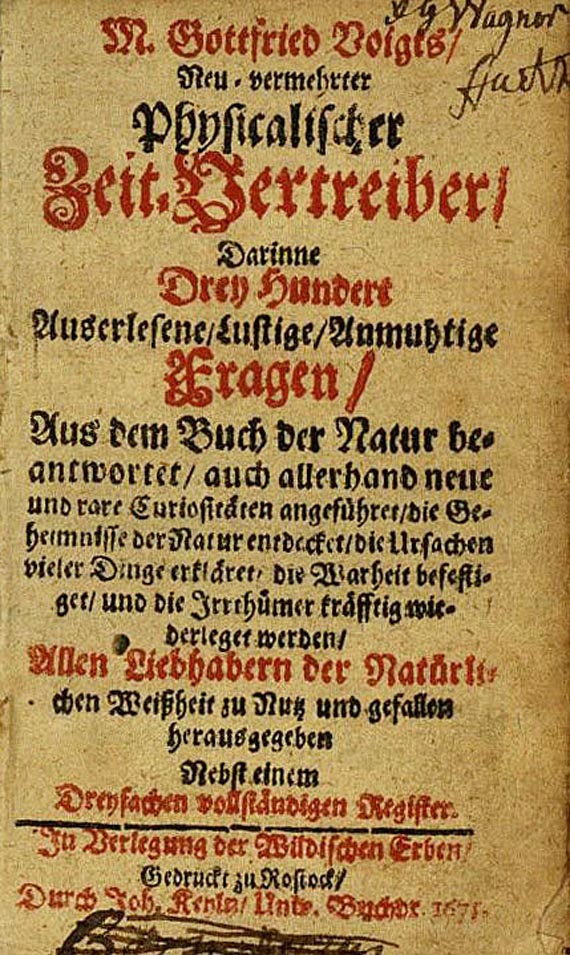 M. Gottfried Voigts/
Neu-vermehrter
Physicalischer
Zeit-Vertreiber/
Darinne
Drey Hundert
Auserlesene/Lustige/Anmuhtige
Fragen/
Aus dem Buch der Natur be-
antwortet/ auch allerhand neue
und rare Curiositäten angeführet/die Ge-
heimnisse der Natur entdecket/die Ursachen
vieler Dinge erkläret/ die Warheit befesti-
get/ und die Irrthümer kräfftig wie-
derleget werden/
Allen Liebhabern der Natürli-
chen Weißheit zu Nutz und gefallen
herausgegeben
Nebst einem
Dreyfachen vollständigen Register.
In Verlegung der Wildischen Erben/
Gedruckt zu Rostock/
Durch Joh. Keyln/ Univ. Buchdr.
Wagner